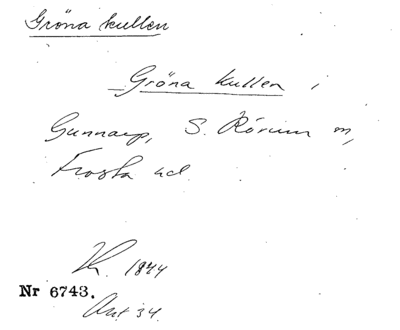 Gröna kullen
Gröna kullen i
Gunnarp, S. Rörum sn,
Frosta hd.
1844
Nr 6743.
Akt 34